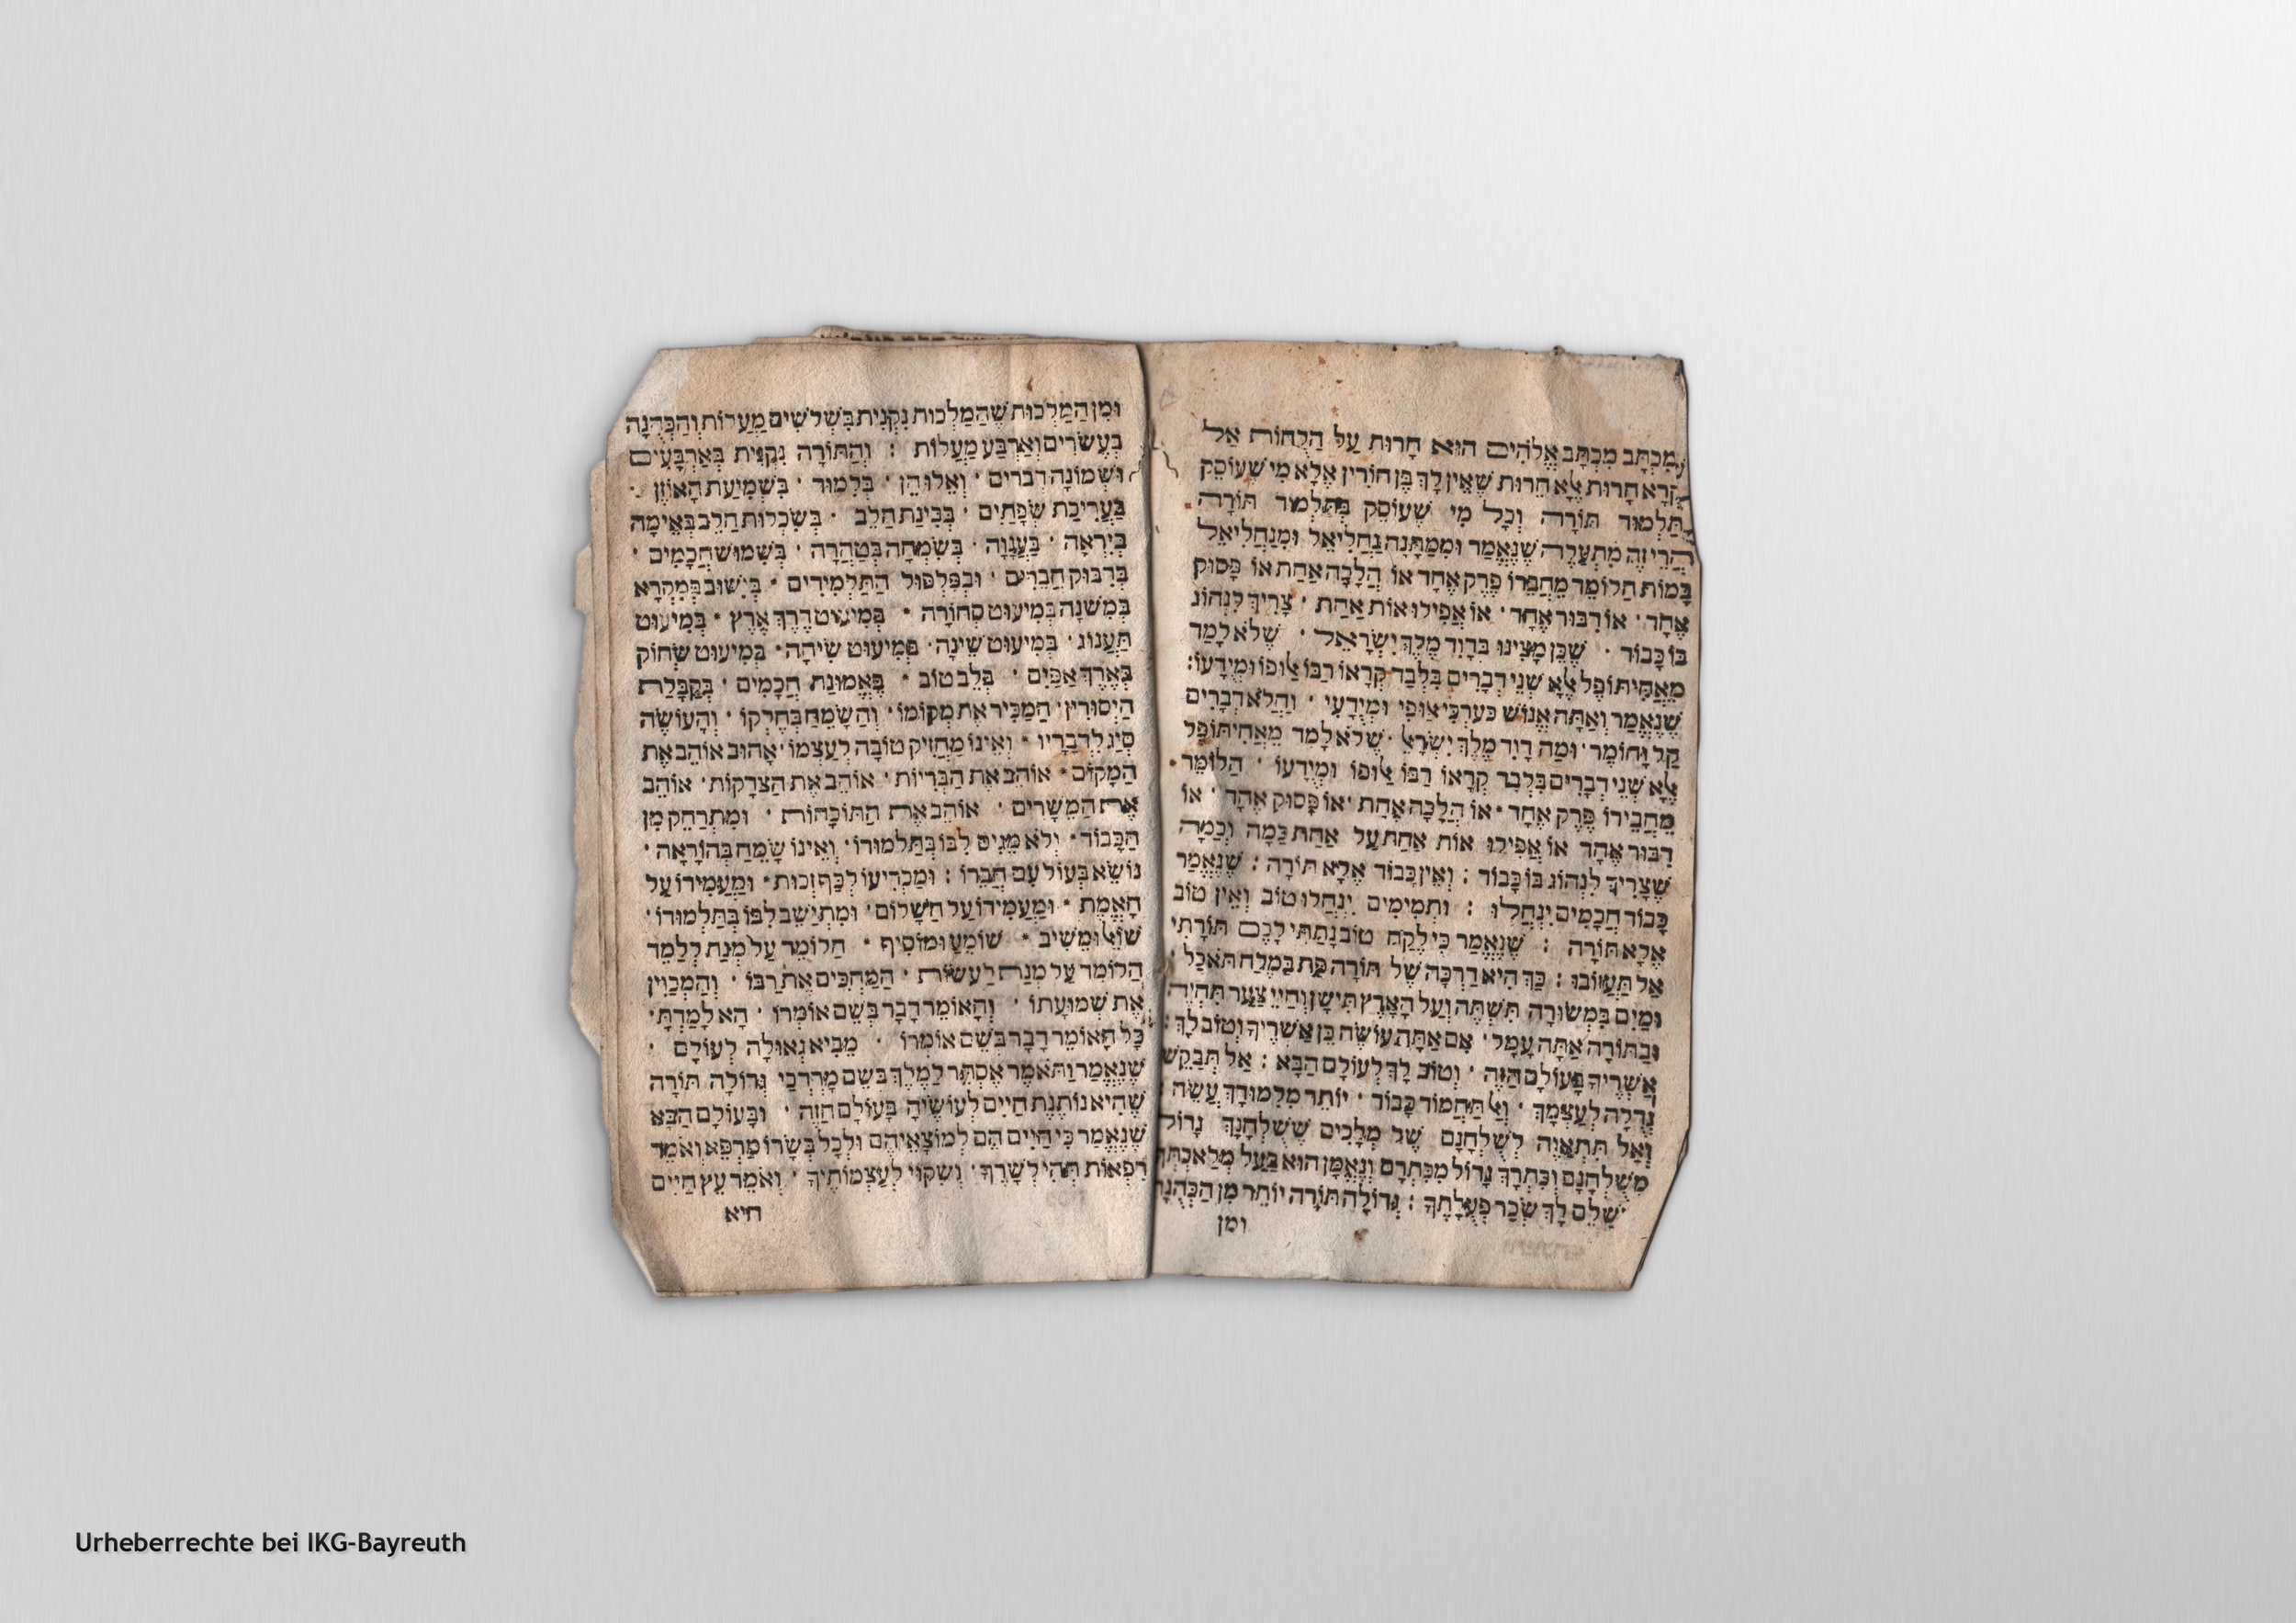 מִכְתָּב מִכְתַּב אֱלֹהִים הוּא חָרוּת עַל הַלֻּחוֹת אַל
קְרָא חָרוּת אֶלָּא חֵרוּת שֶׁאֵין לָךְ בֶּן חוֹרִין אֶלָּא מִי שֶׁעוֹסֵק
בְּתַּלְמוּד תּוֹרָה וְכָל מִי שֶׁעוֹסֵק בְּתַּלְמוּד תּוֹרָה
הֲרֵי זֶה מִתְעַלֶּה שֶׁנֶּאֱמַר וּמִמַּתָּנָה נַחֲלִיאֵל וּמִנַּחֲלִיאֵל
בָּמוֹת הַלּוֹמֵד מֵחֲבֵרוֹ פֶּרֶק אֶחָד אוֹ הֲלָכָה אַחַת אוֹ פָּסוּק
אֶחָד · אוֹ דִבּוּר אֶחָד · אוֹ אֲפִילוּ אוֹת אַחַת · צָרִיךְ לִנְהוֹג
בּוֹ כָּבוֹד · שֶׁכֵּן מָצִינוּ בְּדָוִד מֶלֶךְ יִשְׂרָאֵל · שֶׁלֹּא לָמַד
מֵאֲחִיתוֹפֶל אֶלָּא שְׁנֵי דְבָרִים בִּלְבַד קְרָאוֹ רַבּוֹ אַלּוּפוֹ וּמְיֻדָּעוֹ:
שֶׁנֶּאֱמַר וְאַתָּה אֱנוֹשׁ כְּעֶרְכִּי אַלּוּפִי וּמְיֻדָּעִי · וַהֲלֹא דְבָרִים
קַל וָחוֹמֶר · וּמַה דָוִד מֶלֶךְ יִשְׂרָאֵל · שֶׁלֹּא לָמַד מֵאֲחִיתוֹפֶל
אֶלָּא שְׁנֵי דְבָרִים בִּלְבַד קְרָאוֹ רַבּוֹ אַלּוּפוֹ וּמְיֻדָּעוֹ · הַלּוֹמֵד
מֵחֲבֵירוֹ פֶּרֶק אֶחָד · אוֹ הֲלָכָה אַחַת · אוֹ פָּסוּק אֶחָד · אוֹ
דִבּוּר אֶחָד אוֹ אֲפִילוּ אוֹת אַחַת עַל אַחַת כַּמָּה וְכַמָּה
שֶׁצָּרִיךְ לִנְהוֹג בּוֹ כָּבוֹד : וְאֵין כָּבוֹד אֶלָּא תּוֹרָה : שֶׁנֶּאֱמַר
כָּבוֹד חֲכָמִים יִנְחָלוּ : וּתְמִימִים יִנְחֲלוּ טוֹב וְאֵין טוֹב
אֶלָּא תּוֹרָה : שֶׁנֶּאֱמַר כִּי לֶקַח טוֹב נָתַתִּי לָכֶם תּוֹרָתִי
אַל תַּעֲזוֹבוּ : כַּךְ הִיא דַרְכָּהּ שֶׁל תּוֹרָה פַּת בַּמֶלַח תֹּאכַל ·
וּמַיִם בִּמְשׂוּרָה תִּשְׁתֶּה וְעַל הָאָרֶץ תִּישָׁן וְחַיֵּי צַעַר תִּחְיֶה
וּבַתּוֹרָה אַתָּה עָמֵל · אִם אַתָּה עוֹשֶׂה כֵּן אַשְׁרֶיךָ וְטוֹב לָךְ :
אַשְׁרֶיךָ בָּעוֹלָם הַזֶּה · וְטוֹב לָךְ לָעוֹלָם הַבָּא : אַל תְּבַקֵּשׁ
גְּדֻלָּה לְעַצְמְךָ · וְאַל תַּחְמוֹד כָּבוֹד · יוֹתֵר מִלִּמּוּדָךְ עֲשֵׂה ·
וְאַל תִּתְאַוֶּה לְשֻׁלְחָנָם שֶׁל מְלָכִים שֶׁשֻּׁלְחָנְךָ גָדוֹל
מִשֻּׁלְחָנָם וְכִתְרָךְ גָדוֹל מִכִּתְרָם וְנֶאֱמָן הוּא בַּעַל מְלַאכְתְּךָ
שֶׁיְשַׁלֵּם לָךְ שְׂכַר פְּעֻלָּתֶךָ : גְּדוֹלָה תּוֹרָה יוֹתֵר מִן הַכְּהֻנָּה
ומן
וּמִן הַמַּלְכוּת שֶׁהַמַּלְכוּת נִקְנֵית בִּשְׁלֹשִׁים מַעֲלוֹת וְהַכְּהֻנָּה
בְּעֶשְׂרִים וְאַרְבַּע מַעֲלוֹת : וְהַתּוֹרָה נִקְנֵית בְּאַרְבָּעִים
וּשְׁמוֹנָה דְבָרִים · וְאֵלוּ הֵן · בְּלִמּוּד · בִּשְׁמִיעַת הָאוֹזֶן ·
בַּעֲרִיכַת שְׂפָתַיִם · בְּבִינַת הַלֵּב · בְּשִׂכְלוּת הַלֵּב בְּאֵימָה
בְּיִרְאָה · בַּעֲנָוָה · בְּשִׂמְחָה בְּטָהֳרָה · בְּשִׁמּוּשׁ חֲכָמִים ·
בְּדִבּוּק חֲבֵרִים · וּבְפִלְפּוּל הַתַּלְמִידִים · בְּיִשּׁוּב בְּמִקְרָא
בְּמִשְׁנָה בְּמִיעוּט סְחוֹרָה · בְּמִיעוּט דֶּרֶךְ אֶרֶץ · בְּמִיעוּט
תַּעֲנוּג · בְּמִיעוּט שֵׁינָה · בְּמִיעוּט שִׂיחָה · בְּמִיעוּט שְׂחוֹק
בְּאֶרֶךְ אַפַּיִם · בְּלֵב טוֹב · בֶּאֱמוּנַת חֲכָמִים · בְּקַבָּלַת
הַיִּסּוּרִין · הַמַּכִּיר אֶת מְקוֹמוֹ · וְהַשָּׂמֵחַ בְּחֶלְקוֹ · וְהָעוֹשֶׂה
סְיָג לִדְבָרָיו · וְאֵינוֹ מַחֲזִיק טוֹבָה לְעַצְמוֹ · אָהוּב אוֹהֵב אֶת
הַמָּקוֹם · אוֹהֵב אֶת הַבְּרִיּוֹת · אוֹהֵב אֶת הַצְּדָקוֹת · אוֹהֵב
אֶת הַמֵּשָׁרִים · אוֹהֵב אֶת הַתּוֹכָחוֹת · וּמִתְרַחֵק מִן
הַכָּבוֹד · וְלֹא מֵגִיס לִבּוֹ בְּתַלְמוּדוֹ · וְאֵינוֹ שָׂמֵחַ בְּהוֹרָאָה ·
נוֹשֵׂא בְּעוֹל עִם חֲבֵרוֹ : וּמַכְרִיעוֹ לְכַף זְכוּת · וּמַעֲמִידוֹ עַל
הָאֱמֶת · וּמַעֲמִידוֹ עַל הַשָּׁלוֹם · וּמִתְיַשֵּׁב לִבּוֹ בְּתַלְמוּדוֹ ·
שׁוֹאֵל וּמֵשִׁיב · שׁוֹמֵעַ וּמוֹסִיף · הַלּוֹמֵד עַל מְנַת לְלַמֵּד
הַלּוֹמֵד עַל מְנַת לַעֲשׂוֹת · הַמַּחְכִּים אֶת רַבּוֹ · וְהַמְכַוֵּין
אֶת שְׁמוּעָתוֹ · וְהָאוֹמֵר דָּבָר בְּשֵׁם אוֹמְרוֹ · הָא לָמַדְתָּ ·
כָּל הָאוֹמֵר דָּבָר בְּשֵׁם אוֹמְרוֹ · מֵבִיא גְאוּלָּה לְעוֹלָם ·
שֶׁנֶּאֱמַר וַתֹּאמֶר אֶסְתֵּר לַמֶּלֶךְ בְּשֵׁם מָרְדְּכַי גְּדוֹלָה תּוֹרָה
שֶׁהִיא נוֹתֶנֶת חַיִּים לְעוֹשֶׂיהָ בָּעוֹלָם הַזֶּה · וּבָעוֹלָם הַבָּא
שֶׁנֶּאֱמַר כִּי חַיִּים הֵם לְמוֹצָאֵיהֶם וּלְכָל בְּשָׂרוֹ מַרְפֵּא וְאוֹמֵר
רִפְאוּת תְּהִי לְשָׁרֶּךָ · וְשִׁקּוּי לְעַצְמוֹתֶיךָ · וְאוֹמֵר עֵץ חַיִּים
היא
Urheberrechte bei IKG-Bayreuth